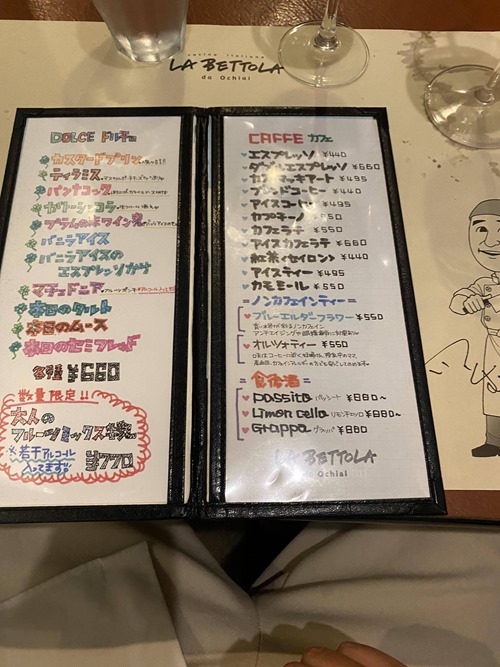 cucina italiana
LA BETTOLA
da Ochiai
DOLCE ドルチェ
カスタードプリン
ティラミス
パンナコッタ
ガトーショコラ
プラムの赤ワイン煮
バニラアイス
バニラアイスの
エスプレッソがけ
マチェドニア
本日のタルト
本日のムース
本日のセミフレッド
各種 ¥660
数量限定!!
大人の
フルーツミックス
※若干アルコール
入ってます ¥770
CAFFE カフェ
エスプレッソ ¥440
ダブルエスプレッソ ¥660
カフェマッキアート ¥495
ブレンドコーヒー ¥440
アイスコーヒー ¥495
カプチーノ ¥550
カフェラテ ¥550
アイスカフェラテ ¥660
紅茶(セイロン) ¥440
アイスティー ¥495
カモミール ¥550
=ノンカフェインティー=
ブルーエルダーフラワー ¥550
オルツォティー ¥550
=食後酒=
Passito パッシート ¥880~
Limon cello リモンチェッロ ¥880~
Grappa グラッパ ¥880
LA BETTOLA
Ochiai